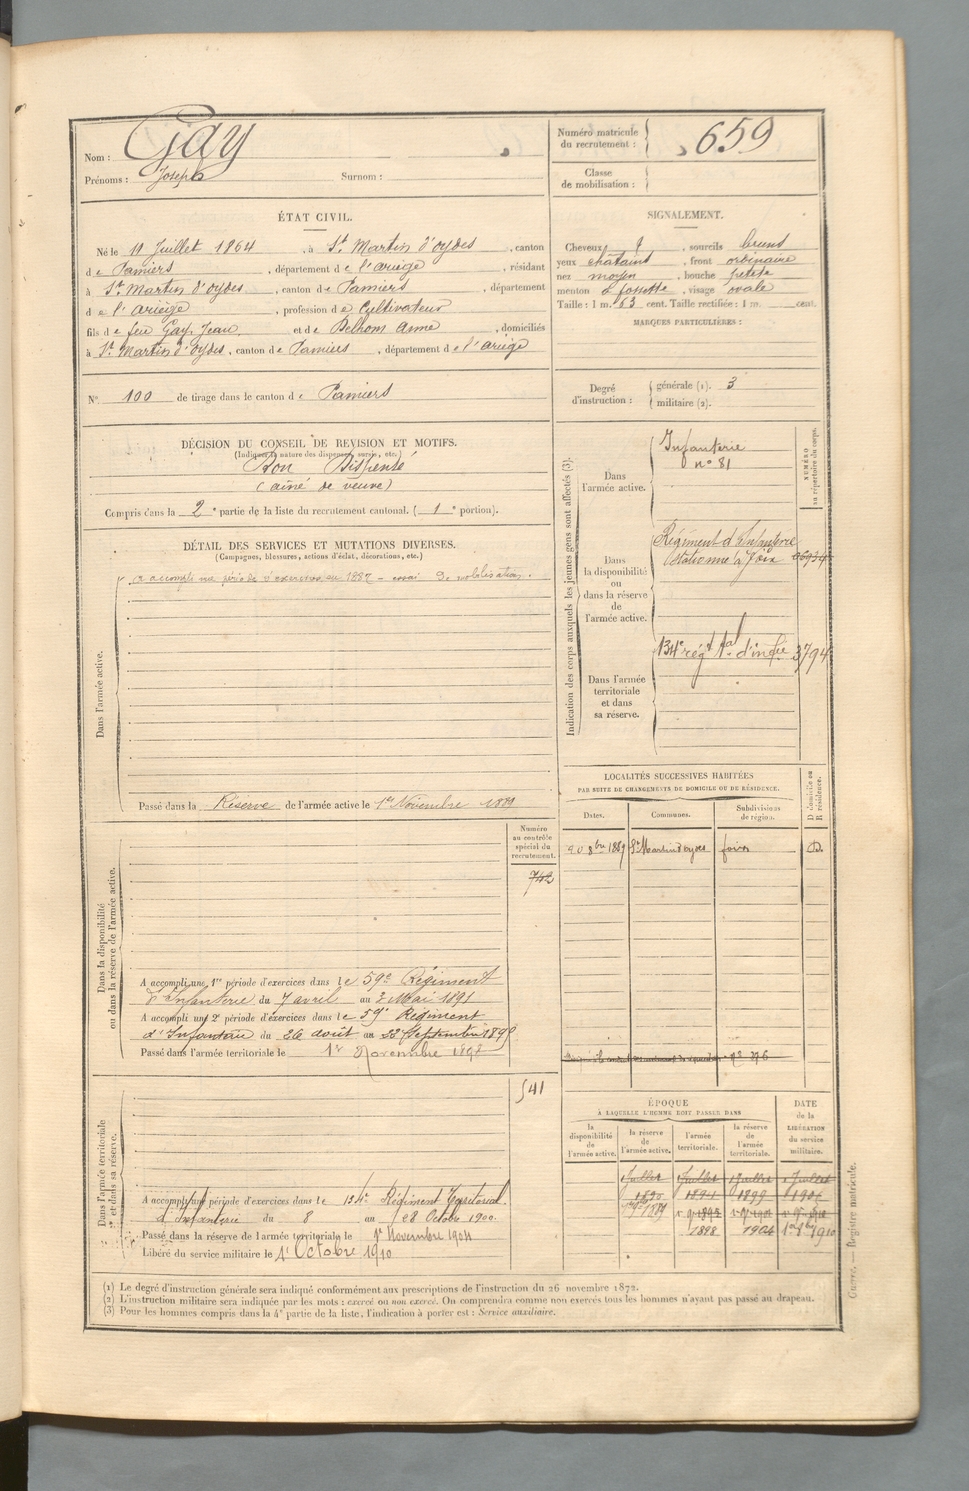 Nom : Gay
Prénoms : Joseph Surnom :
Numéro matricule
du recrutement : 659
Classe
de mobilisation :
ÉTAT CIVIL.
Né le 11 Juillet 1864, à St Martin d'oydes, canton
de Pamiers, département de l'ariège, résidant
à St Martin d'oydes, canton de Pamiers, département
de l'ariège, profession de Cultivateur
fils de feu Gay Jean et de Delhom Anne, domiciliés
à St Martin d'oydes, canton de Pamiers, département de l'ariège
SIGNALEMENT.
Cheveux, sourcils bruns
yeux chatains, front ordinaire
nez moyen, bouche petite
menton à fossette, visage ovale
Taille : 1 m. 63 cent. Taille rectifiée : 1 m. cent.
MARQUES PARTICULIÈRES :
N° 100 de tirage dans le canton de Pamiers
Degré
d'instruction :
générale (1). 3
militaire (2).
DÉCISION DU CONSEIL DE REVISION ET MOTIFS.
(Indiquer la nature des dispenses, sursis, etc.)
Bon Dispensé
(aîné de veuve)
Compris dans la 2e partie de la liste du recrutement cantonal. ( 1e portion).
DÉTAIL DES SERVICES ET MUTATIONS DIVERSES.
(Campagnes, blessures, actions d'éclat, décorations, etc.)
Dans l'armée active.
a accompli une période d'exercices en 1887 - essai de mobilisation.
Passé dans la Réserve de l'armée active le 1er Novembre 1889
Indication des corps auxquels les jeunes gens sont affectés (3).
NUMÉRO
au répertoire du corps.
Dans
l'armée active.
Infanterie
n° 81
Dans
la disponibilité
ou
dans la réserve
de
l'armée active.
Régiment d'Infanterie
stationné à Foix
Dans l'armée
territoriale
et dans
sa réserve.
134e régt tal d'infie 3794
LOCALITÉS SUCCESSIVES HABITÉES
PAR SUITE DE CHANGEMENTS DE DOMICILE OU DE RÉSIDENCE.
D Domicile ou
R résidence.
Dates. Communes. Subdivisions
de région.
20 8bre 1889 St Martin d'oydes foix D.
Dans la disponibilité
ou dans la réserve de l'armée active.
Numéro
au contrôle
spécial du
recrutement.
742
A accompli une 1re période d'exercices dans le 59e Régiment
d'Infanterie du 7 avril au 3 Mai 1891
A accompli une 2e période d'exercices dans le 59e Régiment
d'Infanterie du 26 août au 22 Septembre 189
Passé dans l'armée territoriale le 1er Novembre 1897
Dans l'armée territoriale
et dans sa réserve.
541
A accompli une période d'exercices dans le 134e Régiment Territorial
d'Infanterie du 8 au 28 Octobre 1900.
Passé dans la réserve de l'armée territoriale le 1er Novembre 1904
Libéré du service militaire le 1er Octobre 1910
ÉPOQUE
À LAQUELLE L'HOMME DOIT PASSER DANS
DATE
de la
LIBÉRATION
du service
militaire.
la
disponibilité
de
l'armée active.
la réserve
de
l'armée active.
l'armée
territoriale.
la réserve
de
l'armée
territoriale.
1 Juillet 1 Juillet 1 Juillet 1 Juillet
1890 1894 1899
1889
1898 1904 1910
(1) Le degré d'instruction générale sera indiqué conformément aux prescriptions de l'instruction du 26 novembre 1872.
(2) L'instruction militaire sera indiquée par les mots : exercé ou non exercé. On comprendra comme non exercés tous les hommes n'ayant pas passé au drapeau.
(3) Pour les hommes compris dans la 4e partie de la liste, l'indication à porter est : Service auxiliaire.
Registre matricule.